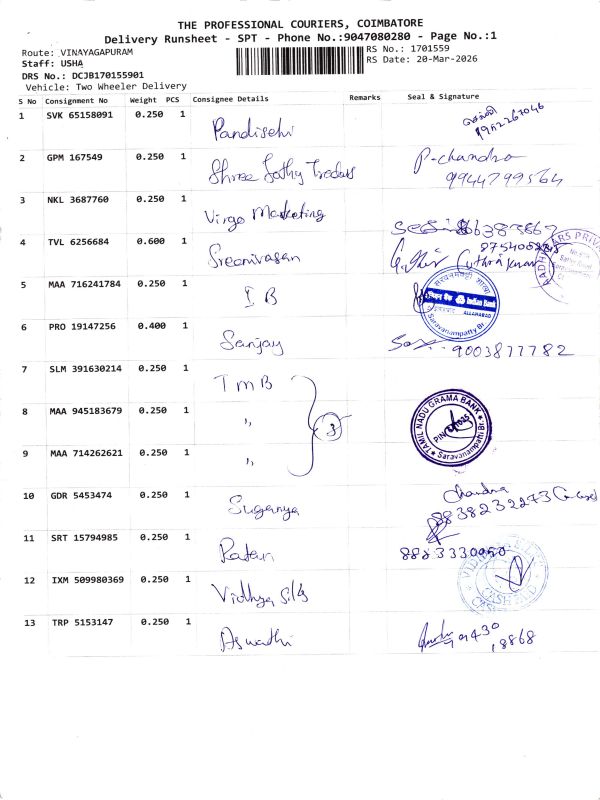 THE PROFESSIONAL COURIERS, COIMBATORE
Delivery Runsheet - SPT - Phone No.:9047080280 - Page No.:1
Route: VINAYAGAPURAM
RS No.: 1701559
Staff: USHA
RS Date: 20-Mar-2026
DRS No.: DCJB170155901
Vehicle: Two Wheeler Delivery
S No Consignment No Weight PCS Consignee Details Remarks Seal & Signature
1 SVK 65158091 0.250 1 Pandiselvi
2 GPM 167549 0.250 1 Shree Jothy Traders P.chandra
9944799564
3 NKL 3687760 0.250 1 Virgo Marketing
4 TVL 6256684 0.600 1 Sreenivasan
AADHA ARS PRIVA
5 MAA 716241784 0.250 1 I B
Indian Bank
ALLAHABAD
Saravanampatty Br.
6 PRO 19147256 0.400 1 Sanjay 9003877782
7 SLM 391630214 0.250 1 TMB
8 MAA 945183679 0.250 1 ,, 3
TAMIL NADU GRAMA BANK
Saravanampatti Br.
9 MAA 714262621 0.250 1 ,,
10 GDR 5453474 0.250 1 Suganya Chandra
8838232273
11 SRT 15794985 0.250 1 Ratan
12 IXM 509980369 0.250 1 Vidhya Silks
13 TRP 5153147 0.250 1 Aswathi